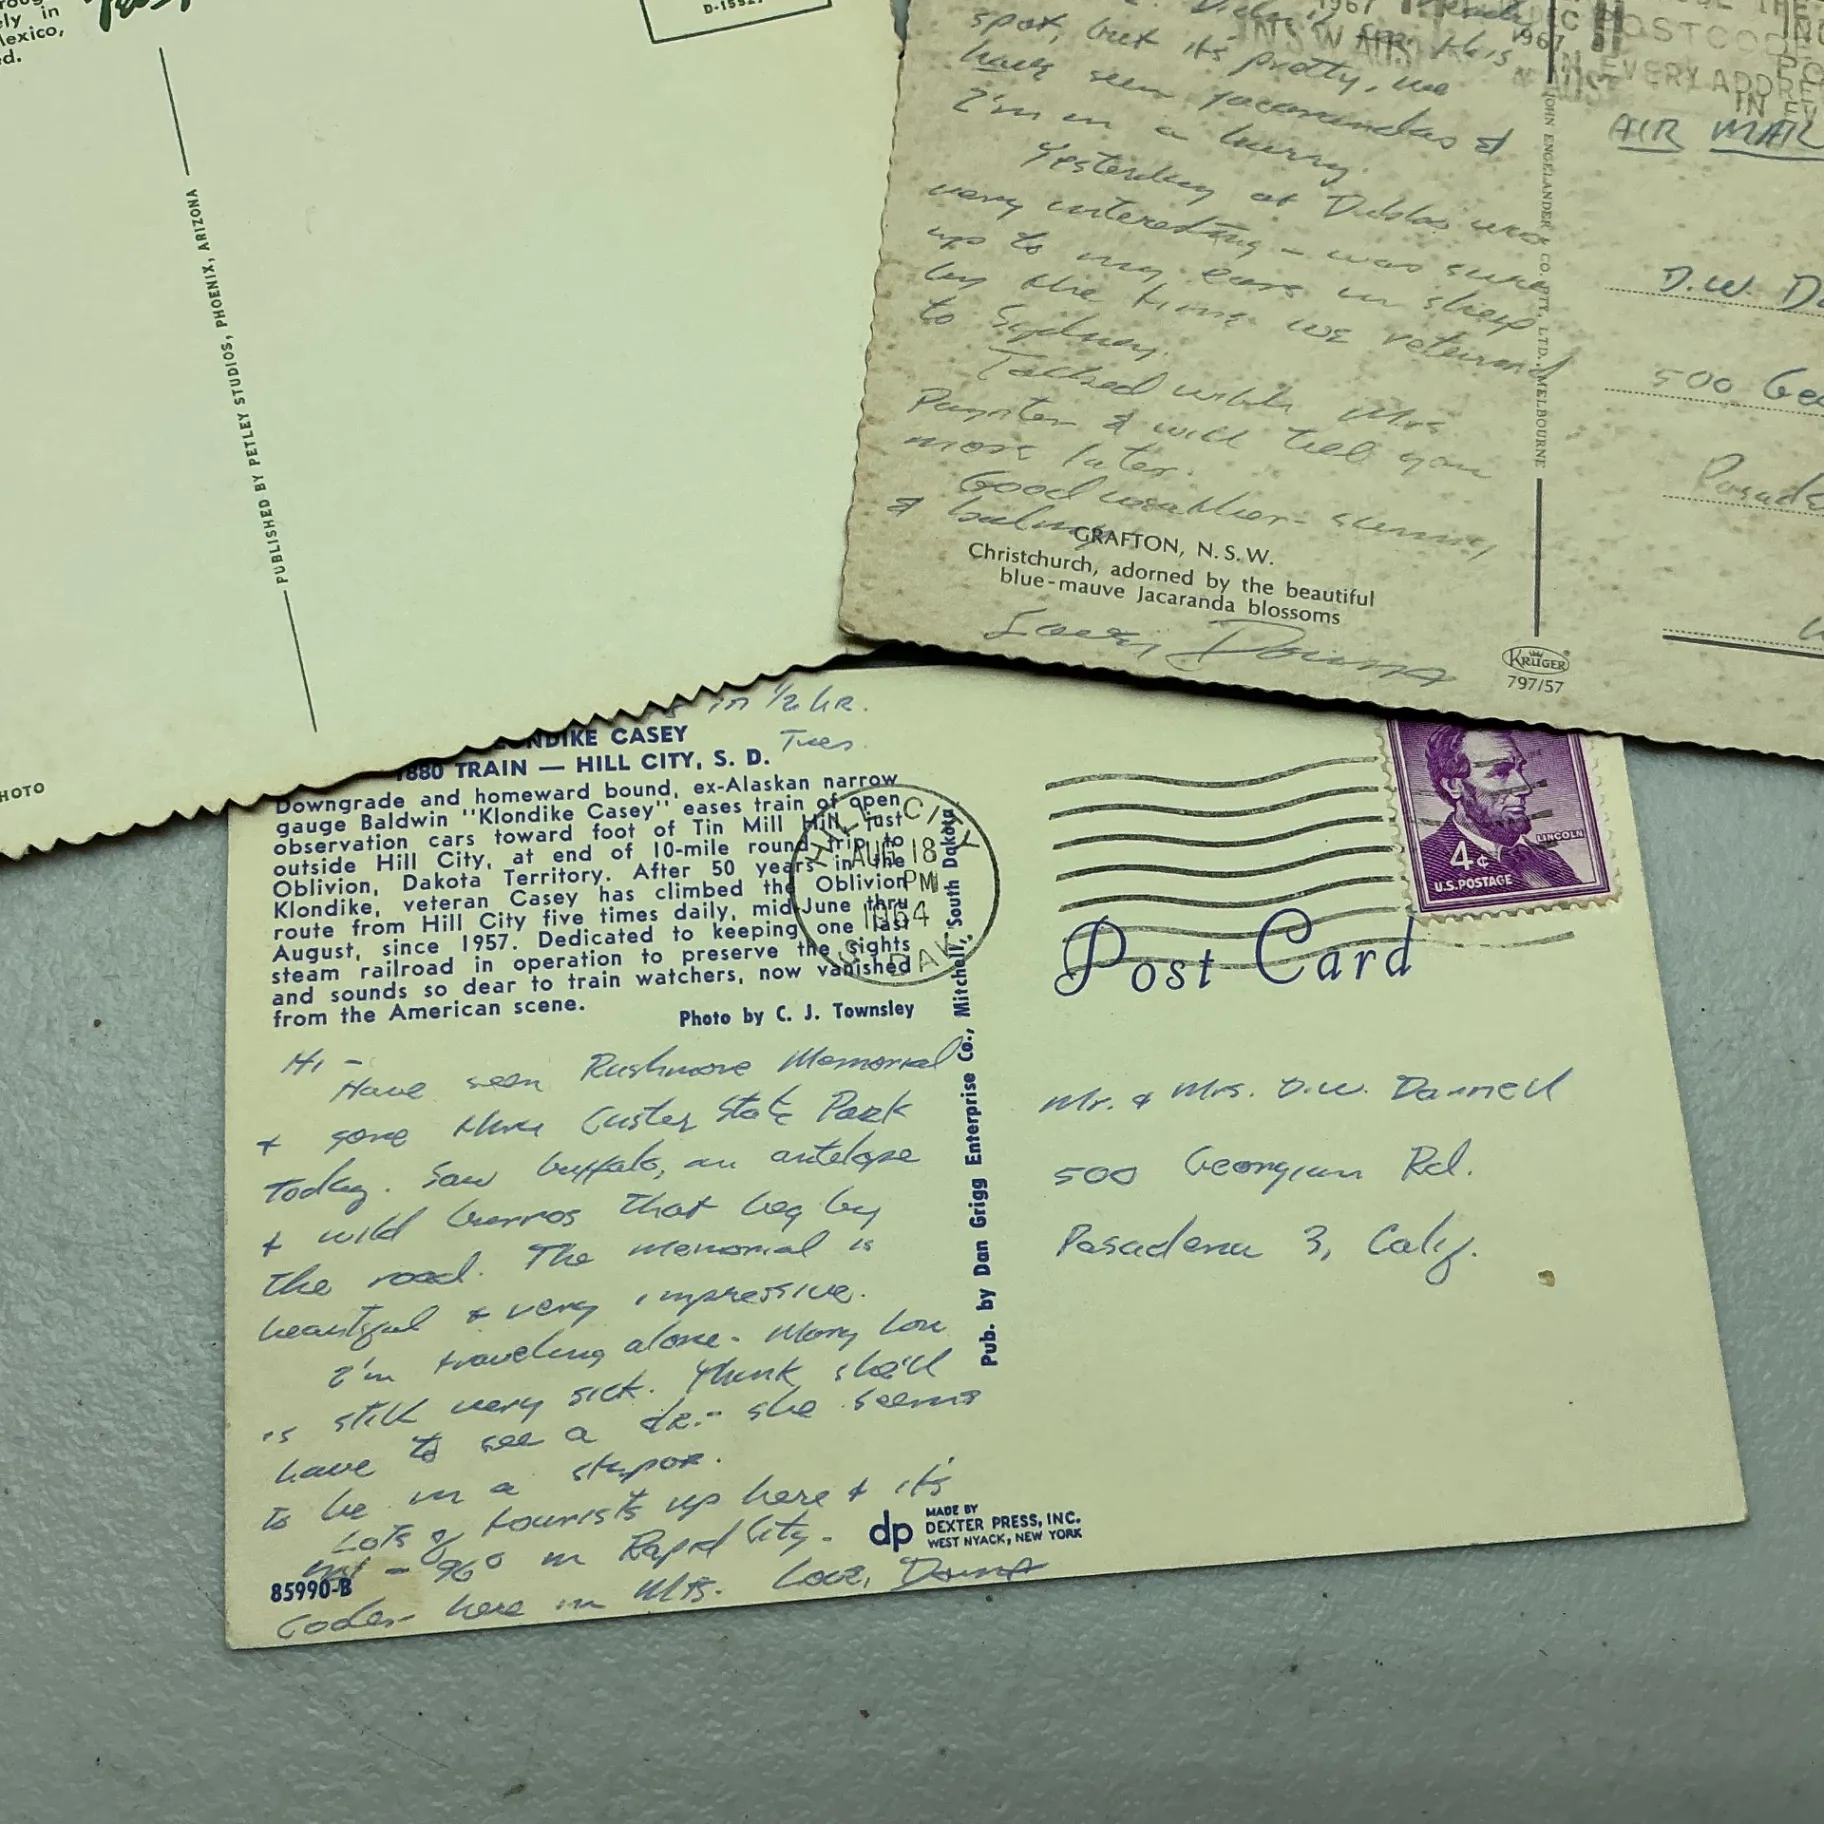 ely in
exico,
ed.
PUBLISHED BY PETLEY STUDIOS, PHOENIX, ARIZONA
HOTO
1967
N S W AUS
1967
POSTCODE
EVERY ADDRE
IN EV
AIR MAIL
spot, but it's pretty, we
have seen jacarandas &
I'm in a hurry.
Yesterday at Dubbo was
very interesting - was sure
up to my ears in sheep
by the time we returned
to Sydney.
Talked with Mrs
& will tell you
more later.
Good weather - sunny
& balmy
GRAFTON, N.S.W.
Christchurch, adorned by the beautiful
blue-mauve Jacaranda blossoms
Love, Donna
JOHN ENGELANDER CO. PTY. LTD., MELBOURNE
KRUGER
797/57
D.W. Da
500 Geo
Pasade
in 1/2 hr.
Tues.
NDIKE CASEY
1880 TRAIN — HILL CITY, S. D.
Downgrade and homeward bound, ex-Alaskan narrow
gauge Baldwin "Klondike Casey" eases train of open
observation cars toward foot of Tin Mill Hill just
outside Hill City, at end of 10-mile round trip to
Oblivion, Dakota Territory. After 50 years in the
Klondike, veteran Casey has climbed the Oblivion
route from Hill City five times daily, mid-June thru
August, since 1957. Dedicated to keeping one last
steam railroad in operation to preserve the sights
and sounds so dear to train watchers, now vanished
from the American scene.
Photo by C. J. Townsley
HILL CITY
AUG 18
PM
1964
S. DAK
LINCOLN
4¢
U.S. POSTAGE
Post Card
Hi -
Have seen Rushmore Memorial
& gone thru Custer State Park
today. Saw buffalo, an antelope
& wild burros that beg by
the road. The memorial is
beautiful & very impressive.
I'm traveling alone - Mary Lou
is still very sick. Think she'll
have to see a dr. - she seems
to be in a stupor.
Lots of tourists up here & it's
hot - 96° in Rapid City.
Cooler here in Mts. Love, Donna
85990-B
Pub. by Dan Grigg Enterprise Co., Mitchell, South Dakota
dp MADE BY
DEXTER PRESS, INC.
WEST NYACK, NEW YORK
Mr. & Mrs. D.W. Darnell
500 Georgian Rd.
Pasadena 3, Calif.